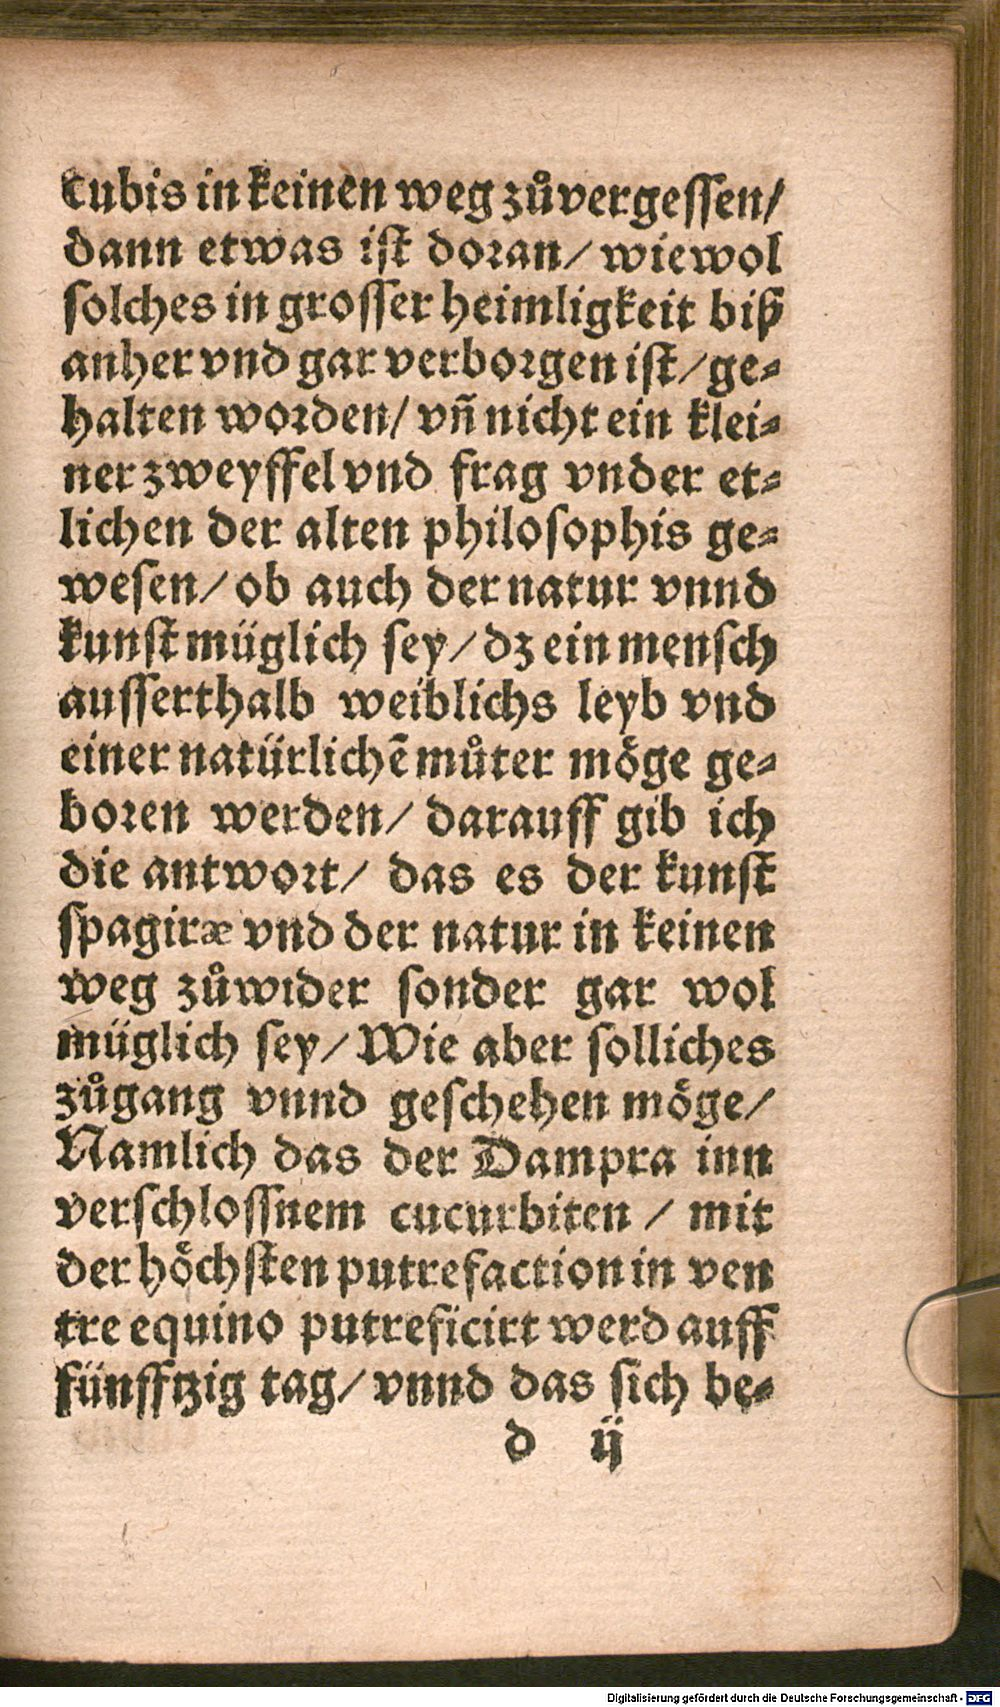 cubis in keinen weg zůvergessen/
dann etwas ist doran/ wiewol
solches in grosser heimligkeit biß
anher vnd gar verborgen ist/ ge⸗
halten worden/ vñ nicht ein klei⸗
ner zweyffel vnd frag vnder et⸗
lichen der alten philosophis ge⸗
wesen/ ob auch der natur vnnd
kunst müglich sey/ dz ein mensch
ausserthalb weiblichs leyb vnd
einer natürlichē můter möge ge⸗
boren werden/ darauff gib ich
die antwort/ das es der kunst
spagiræ vnd der natur in keinen
weg zůwider sonder gar wol
müglich sey/ Wie aber solliches
zůgang vnnd geschehen möge/
Namlich das der Dampra inn
verschlossnem cucurbiten / mit
der höchsten putrefaction in ven
tre equino putreficirt werd auff
fünfftzig tag/ vnnd das sich be⸗
d ij
Digitalisierung gefördert durch die Deutsche Forschungsgemeinschaft - DFG